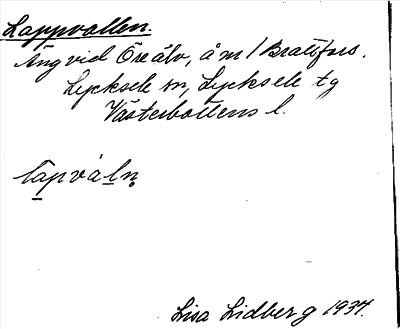 Lappvallen.
Äng vid Öreälv, å m / Brattfors.
Lycksele sn, Lycksele tg
Västerbottens l.
lapváln̥
Lisa Lidberg 1937.